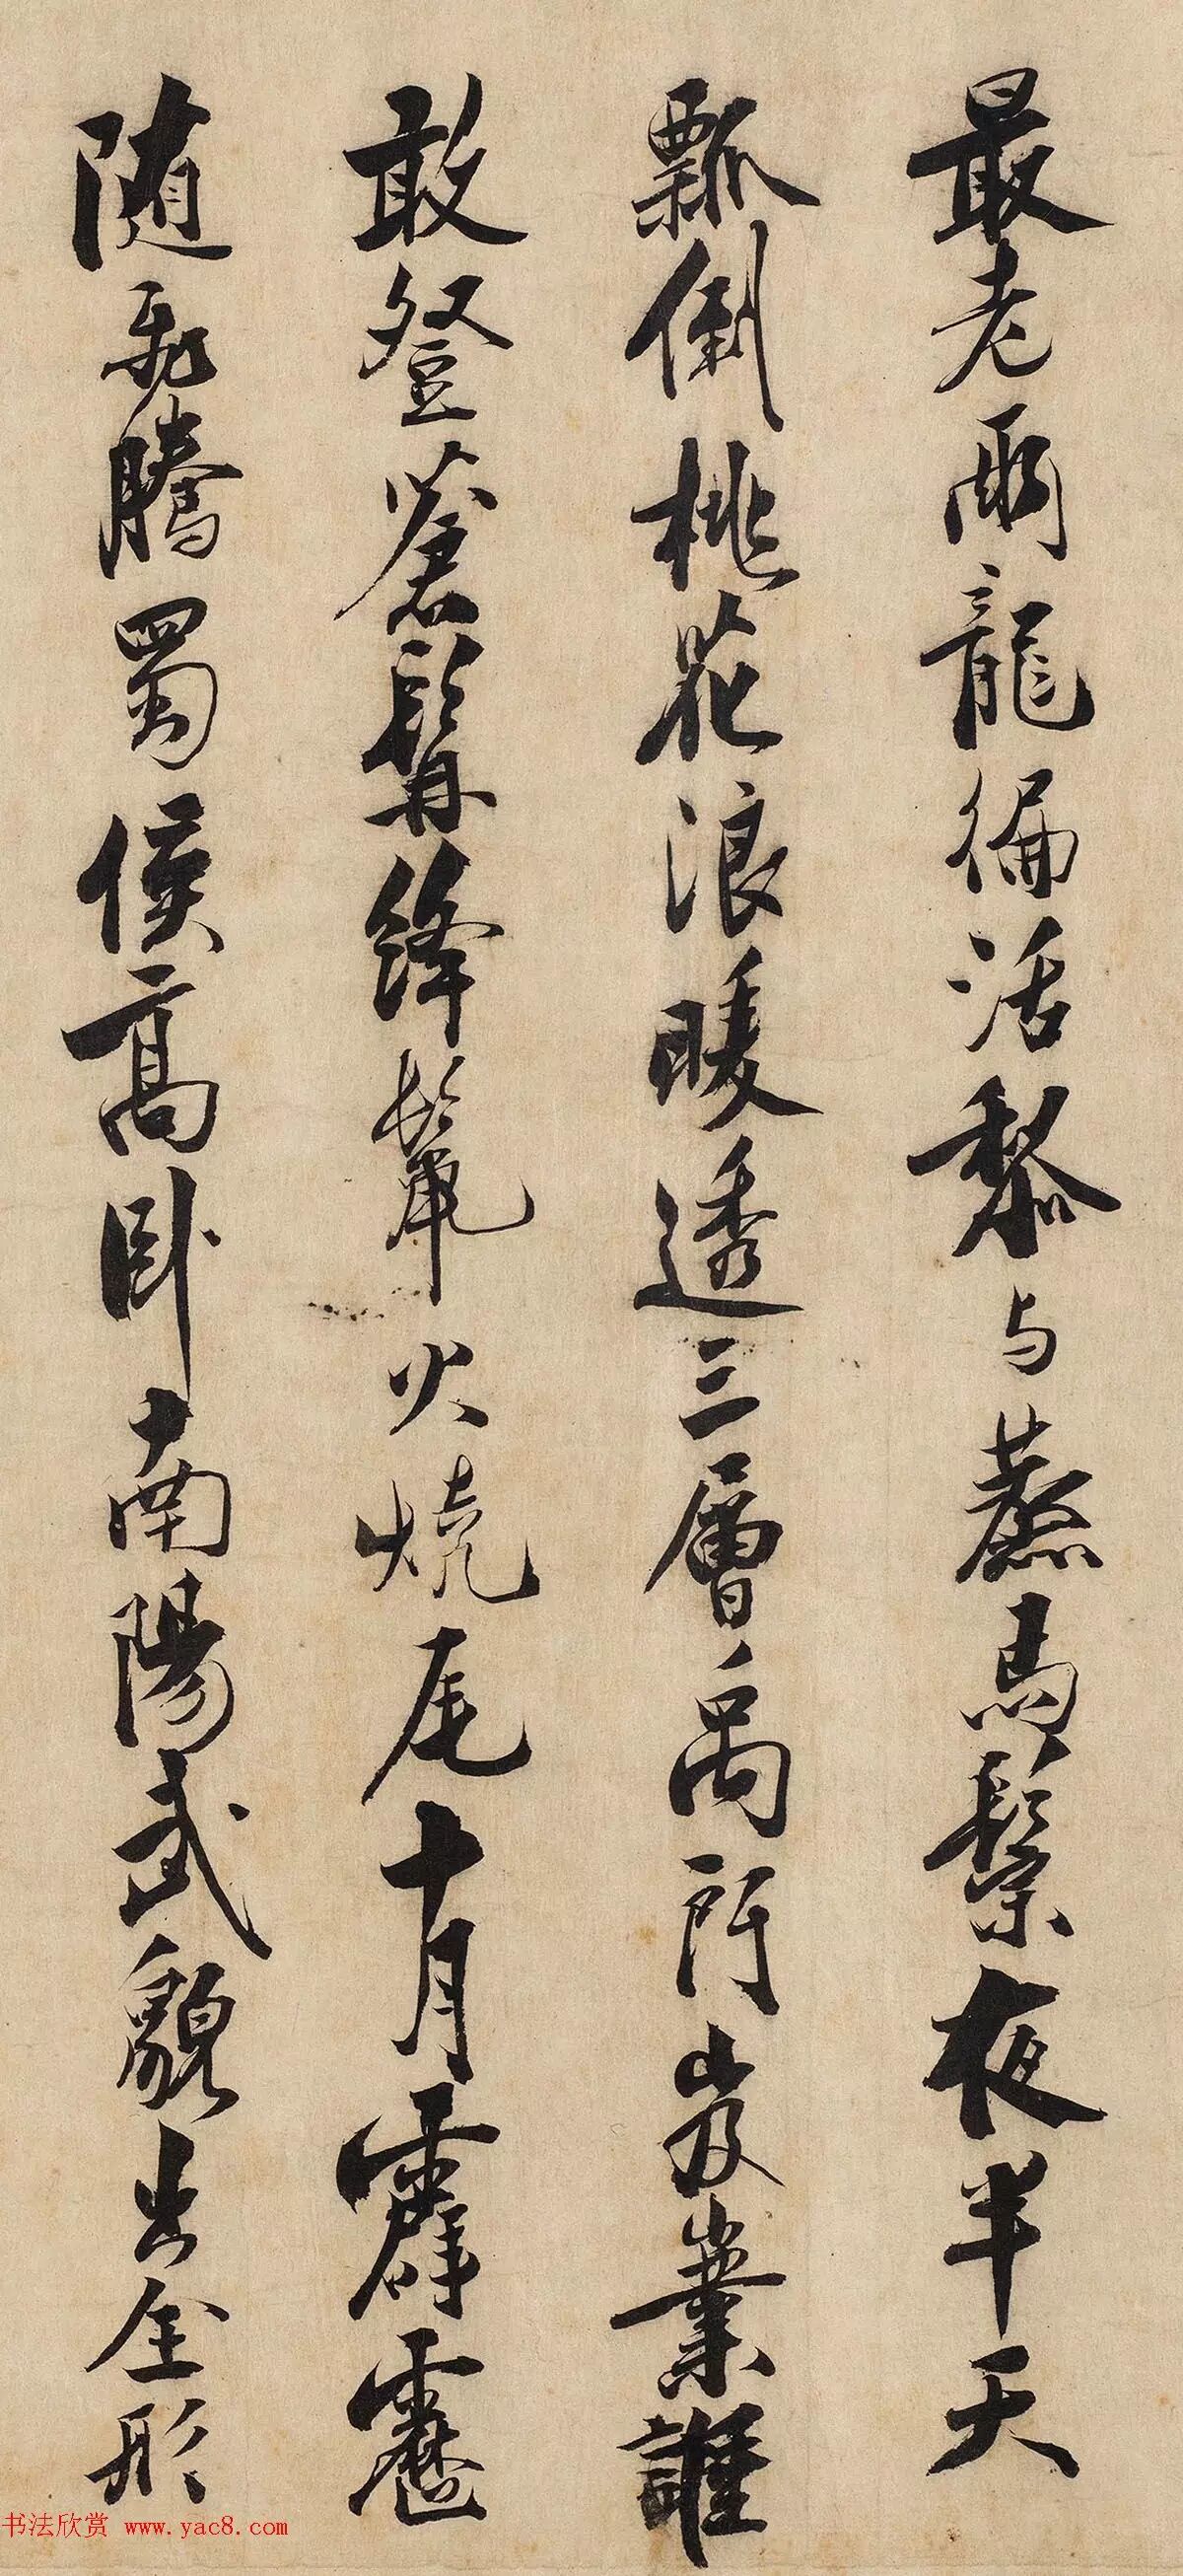 最老雨龍徧活黎与蔗馬鬃夜半天
瓢倒桃花浪暖透三層禹门岌業誰
敢登蒼髯絳鬣火燒尾十月霹靂
随飛騰蜀侯高卧南陽武貌出全形
书法欣赏 www.yac8.com